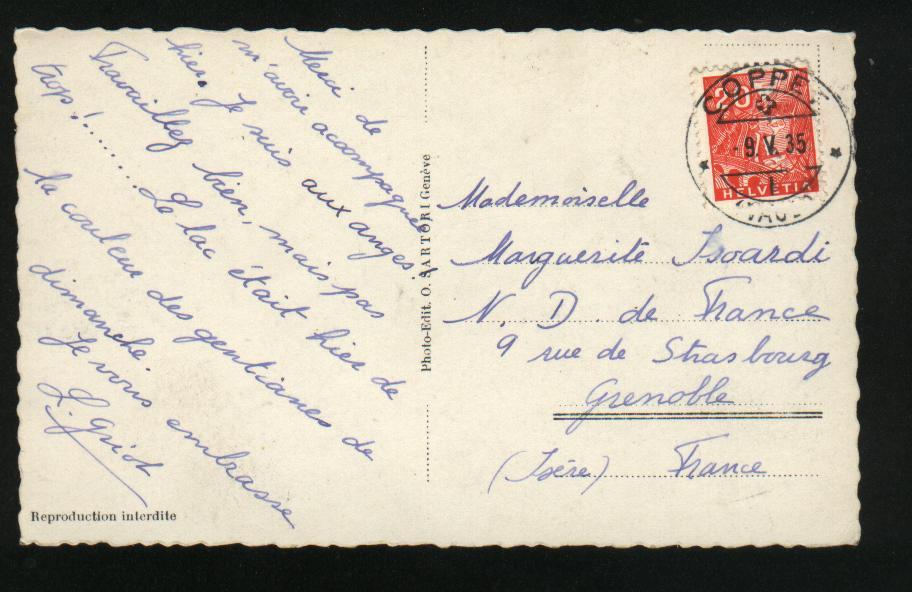 Merci de
m'avoir accompagnée
hier. Je suis aux anges!
Travaillez bien, mais pas
trop!........ Le lac était hier de
la couleur des gentianes de
dimanche.
Je vous embrasse
Reproduction interdite
Photo-Edit. O. SARTORI Genève
COPPET
20
-9.V.35
HELVETIA
(VAUD)
Mademoiselle
Marguerite Isoardi
N. D. de France
9 rue de Strasbourg
Grenoble
(Isère) France